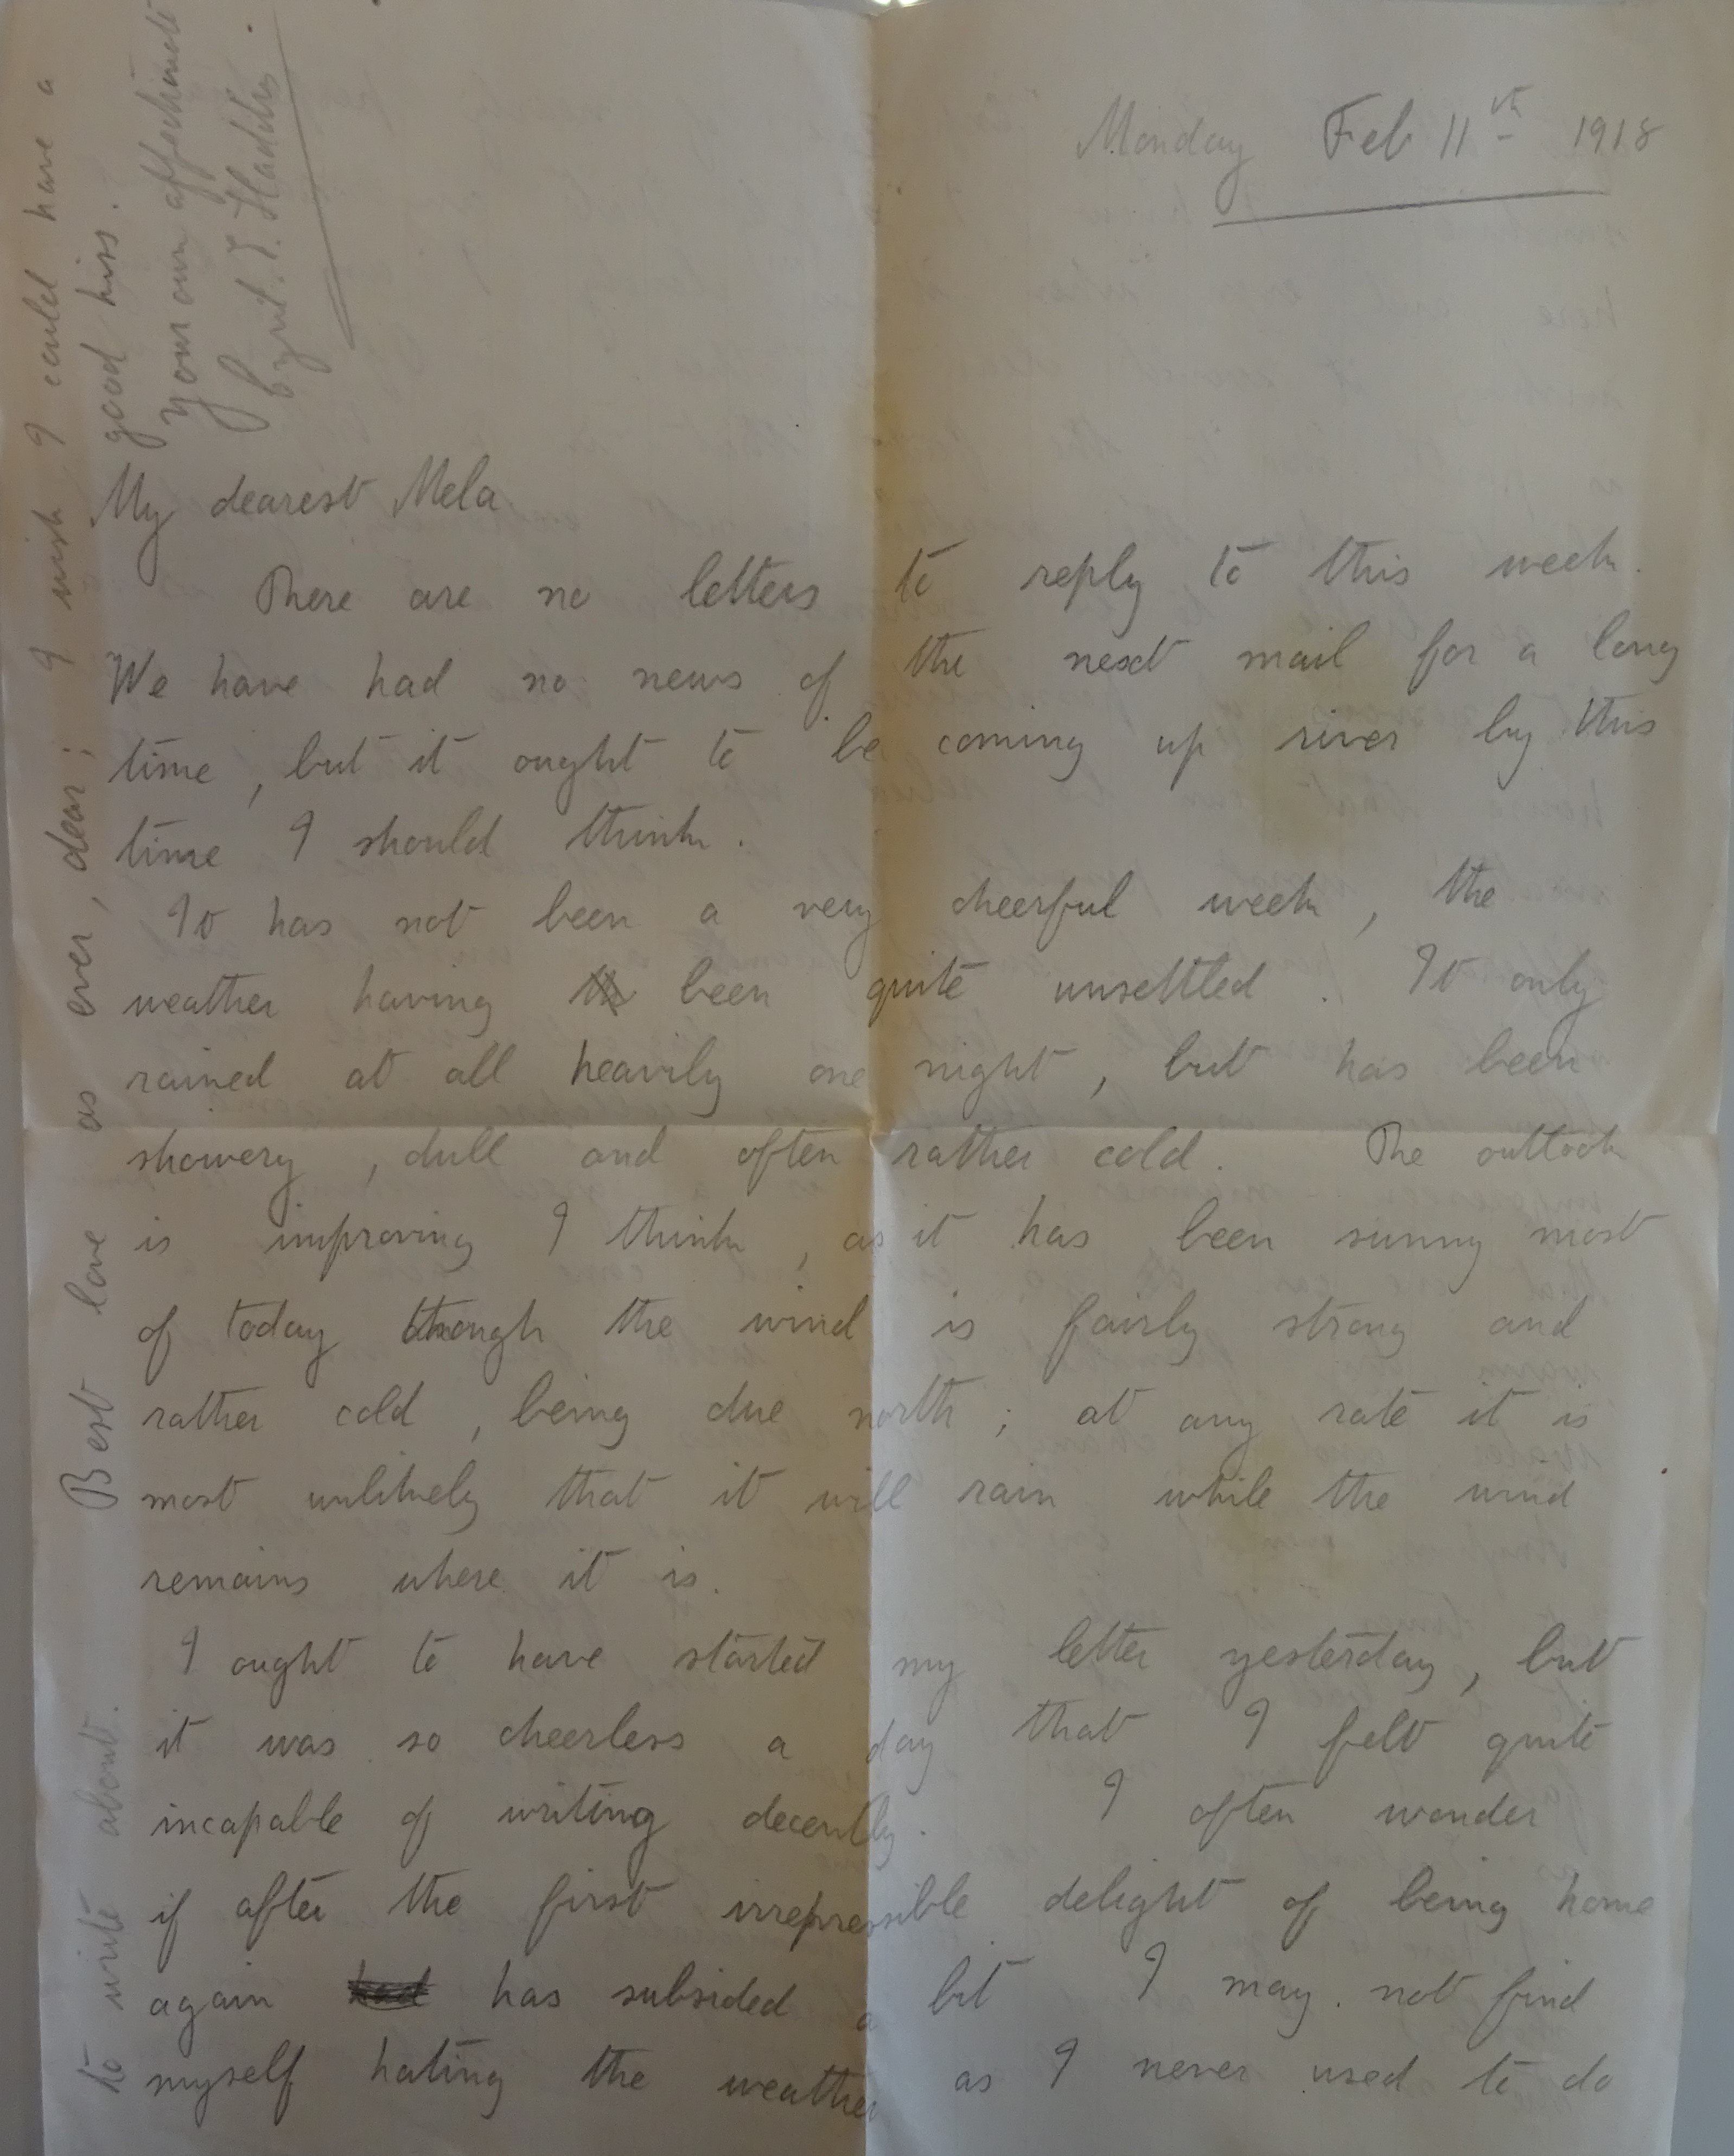 Monday Feb 11th 1918
My dearest Mela
There are no letters to reply to this week.
We have had no news of the next mail for a long
time, but it ought to be coming up river by this
time I should think.
It has not been a very cheerful week, the
weather having been quite unsettled. It only
rained at all heavily one night, but has been
showery, dull and often rather cold. The outlook
is improving I think, as it has been sunny most
of today though the wind is fairly strong and
rather cold, being due north; at any rate it is
most unlikely that it will rain while the wind
remains where it is.
I ought to have started my letter yesterday, but
it was so cheerless a day that I felt quite
incapable of writing decently. I often wonder
if after the first irrepressible delight of being home
again had has subsided a bit I may not find
myself hating the weather as I never used to do
to write about. Best love as ever, dear; I wish I could have a
good kiss.
your own affectionate
Cyril. T.